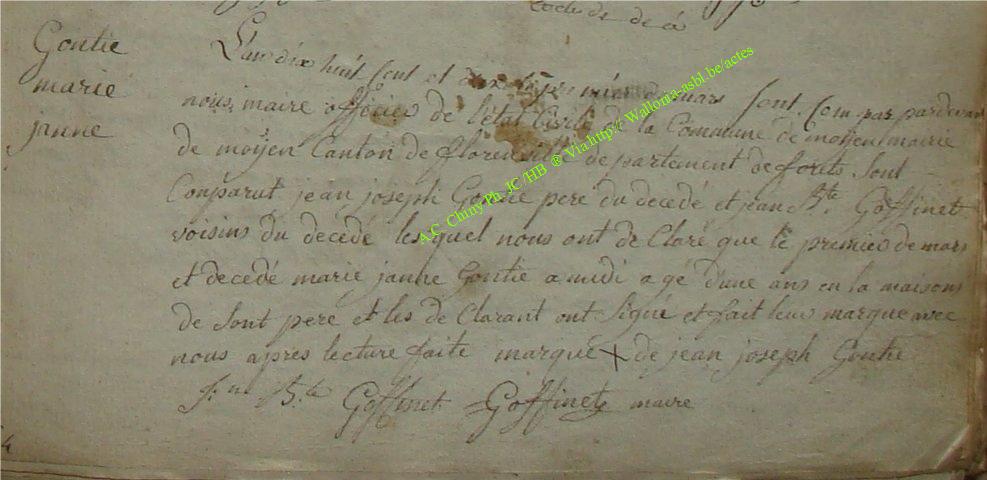 Loclude de a
Gontie
marie
janne
L'an dix huit sent et dix le premier de mars sont Com par pardevan
nous maire officier de l'état Civil de la Commune de moÿen mairie
de moÿen Canton de florenville departement de forets, sont
Conparut jean joseph Gontie pere du decedé et jean Bte Goffinet
voisins du decedé lesquel nous ont de Claré que le premier de mars
et decedé marie janne Gontie a midi a gé d'une ans en la maisons
de sont pere et les de Clarant ont signé et fait leur marque avec
nous apres lecture faite marque X de jean joseph Gontie
j:n B:te Goffinet Goffinet maire
A.C. Chiny Ph. JC /HB ® Via http:// Wallonia-asbl.be/actes